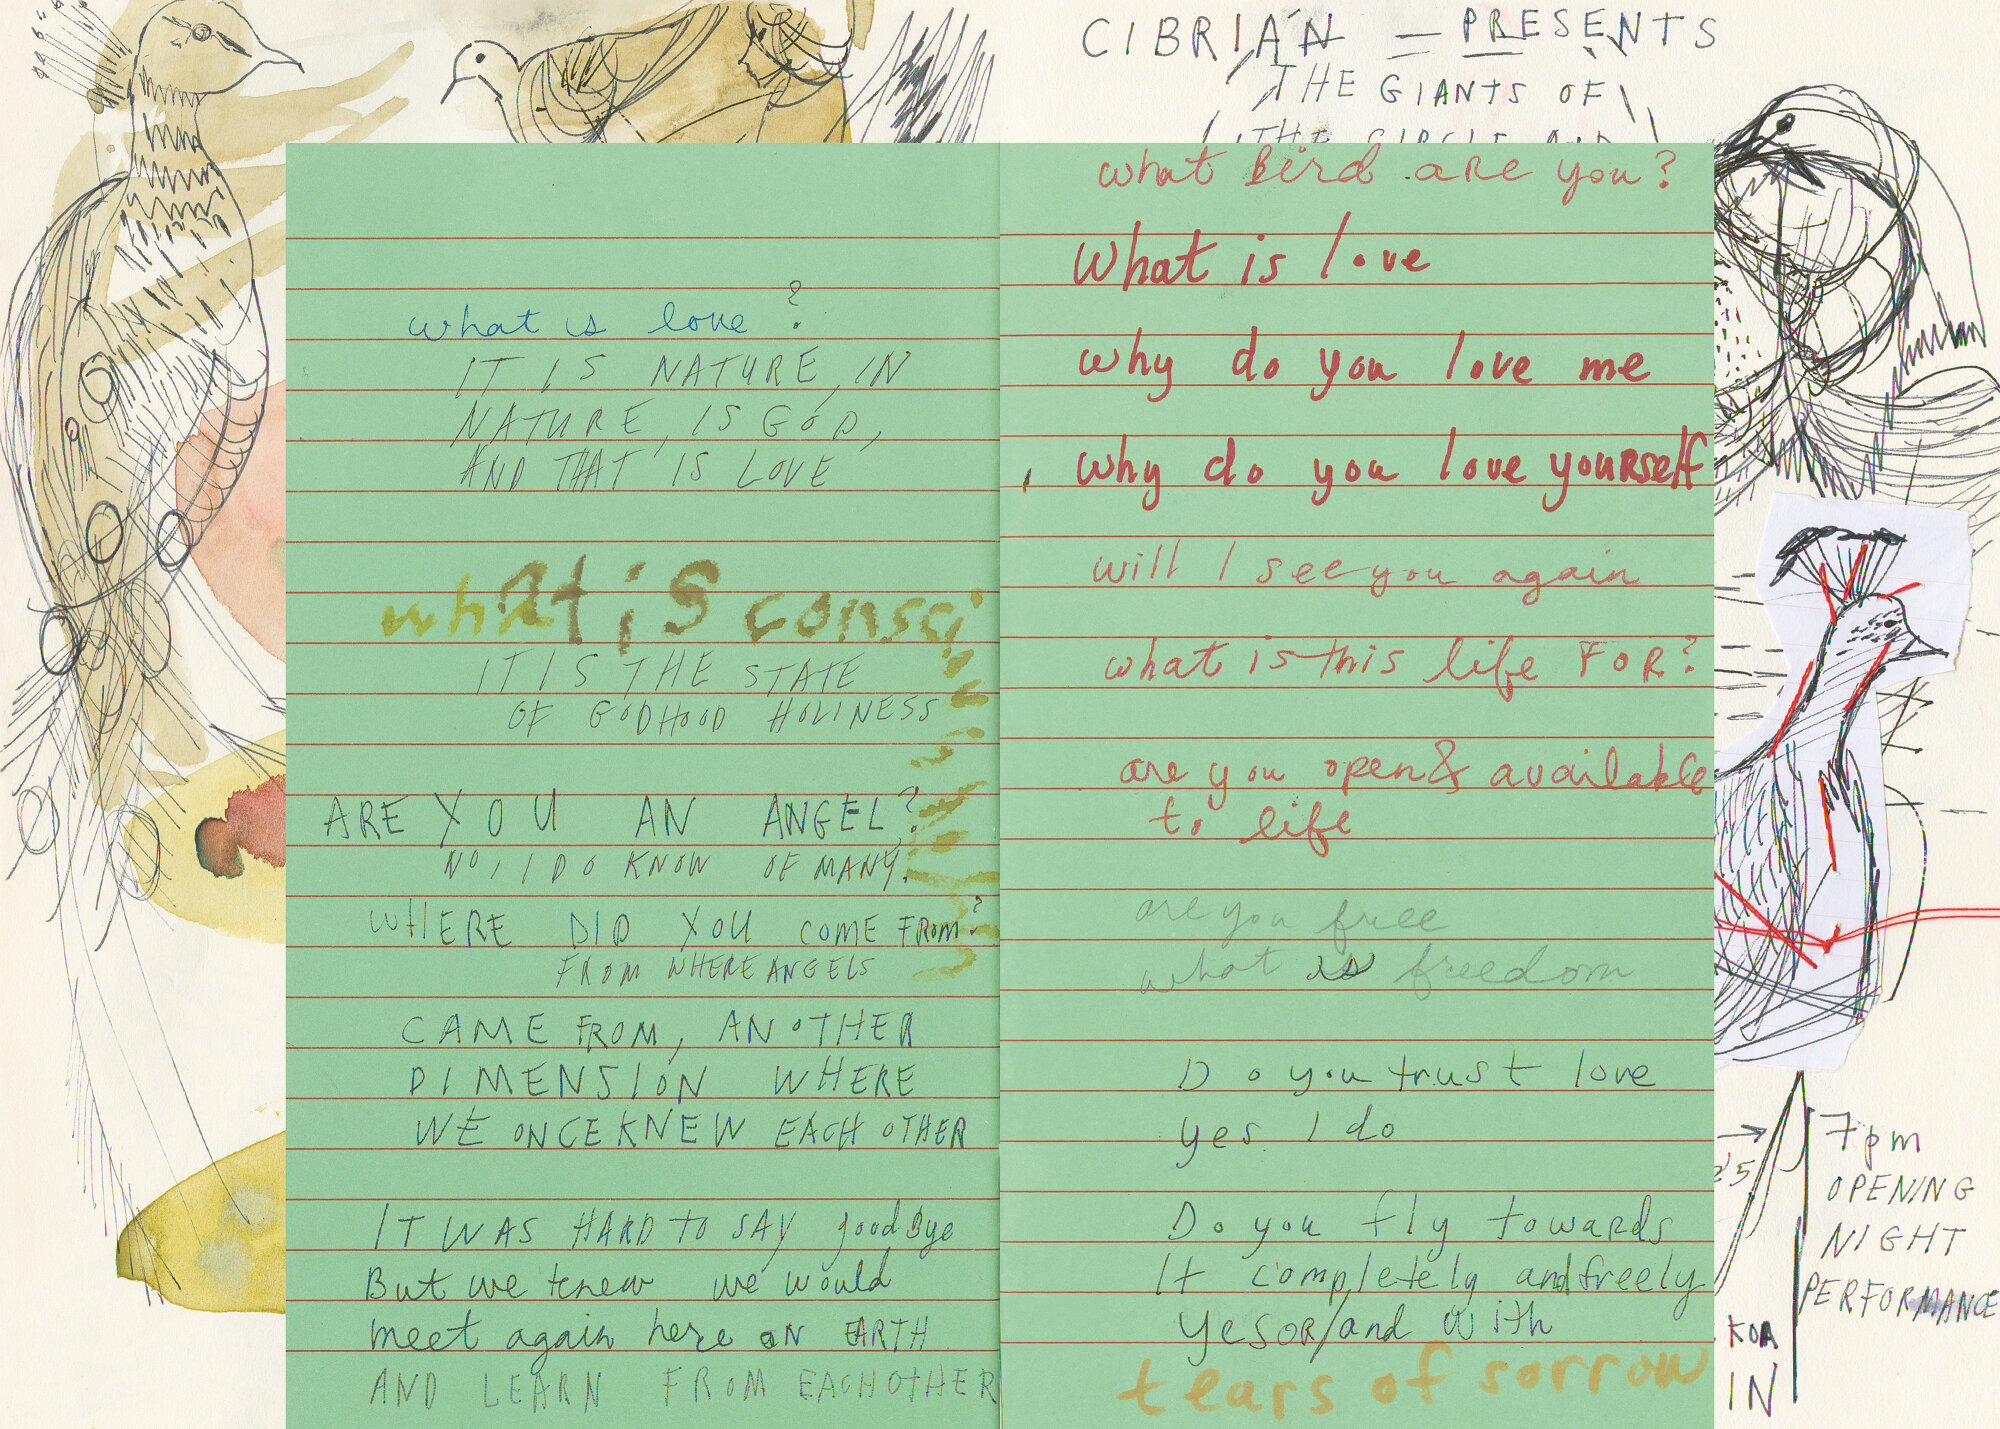 CIBRIÁN = PRESENTS
THE GIANTS OF
THE CIRCLE AND
what is love?
IT IS NATURE, IN
NATURE, IS GOD,
AND THAT IS LOVE
what is consciousness
IT IS THE STATE
OF GODHOOD HOLINESS
ARE YOU AN ANGEL?
NO, I DO KNOW OF MANY.
WHERE DID YOU COME FROM?
FROM WHERE ANGELS
CAME FROM, ANOTHER
DIMENSION WHERE
WE ONCE KNEW EACH OTHER
IT WAS HARD TO SAY goodBye
But we knew we would
meet again here ON EARTH
AND LEARN FROM EACHOTHER
what Bird are you?
What is love
why do you love me
why do you love yourself
will I see you again
what is this life FOR?
are you open & available
to life
are you free
what is freedom
Do you trust love
yes I do
Do you fly towards
It completely and freely
Yes OR/and with
tears of sorrow
7pm
OPENING
NIGHT
PERFORMANCE
KOA
IN